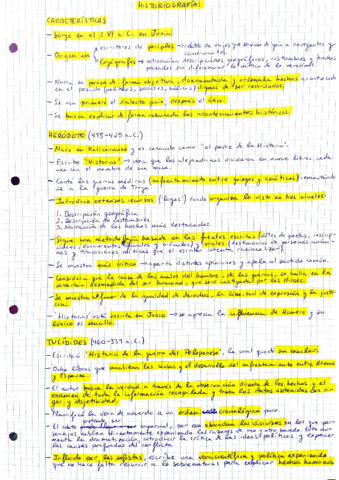 HISTORIOGRAFÍA
CARACTERÍSTICAS
- Surge en el S.VI a.C. en Jonia
- Origen en escritores de periplos → relatos de viajes que servían de guía a navegantes y
comerciantes
logógrafos → introducían descripciones geográficas, costumbres y hechos
pasados sin diferenciar lo mítico de lo
- Narra en prosa de forma objetiva, documentada y ordenada hechos acontecidos
en el pasado (políticos, sociales, bélicos) dignos de ser recordados.
- Se usa primero el dialecto jonio, después el ático.
- Se busca explicar de forma razonada los acontecimientos históricos.
HERÓDOTO (485-425 a.C.)
- Nace en Halicarnaso y es conocido como "el padre de la Historia".
- Escribe "Historias" → obra que los alejandrinos dividieron en nueve libros cada
uno con el nombre de una musa.
- Contó las guerras médicas (enfrentamiento entre griegos y asiáticos) remontándose
a la guerra de Troya.
- Introduce extensos excursos donde organiza lo visto en tres niveles:
1. Descripción geográfica
2. Descripción de costumbres
3. Narración de los hechos más destacados.
- Sigue una metodología basada en las fuentes escritas (listas de poetas, inscripciones,
documentos oficiales y orales (testimonios de personas
y tradiciones míticas que él escribe
- Se muestra más crítico → aporta distintas opiniones y apela al sentido común.
- Considera que la causa de los males del hombre, de las guerras, se halla en la
ambición desmedida del ser humano, que será castigada por los dioses.
- Se muestra defensor de la igualdad de derechos, la libertad de expresión y la justicia.
- "Historias" está escrita en Jonio → se aprecia la influencia de Homero y su
léxico es sencillo.
TUCÍDIDES (460-399 a.C.)
- Escribió "Historia de la guerra del Peloponeso", la cual quedó sin concluir.
- Ocho libros que analizan las causas y el desarrollo del enfrentamiento entre Atenas
y Esparta.
- El autor busca la verdad a través de la observación directa de los hechos y el
examen de toda la información recopilada y trata los datos obtenidos con rigor
y objetividad.
- Planificó la obra de acuerdo a un orden cronológico
- El relato pretende ser imparcial, por eso abundan los discursos en los que personajes
hablan directamente exponiendo las razones de uno y otro bando. Esto aumenta
la dramatización, introducir la crítica de las ideas políticas y exponer
las causas profundas del conflicto.
- Influido por los sofistas, escribe una obra científica y política exponiendo
que no hace falta recurrir a lo sobrenatural para explicar hechos humanos